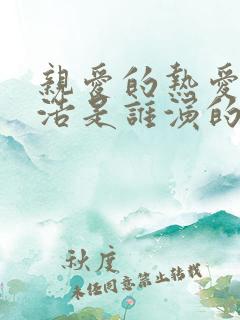 親愛的熱愛
活是誰演的
秋度
未经同意禁止转载